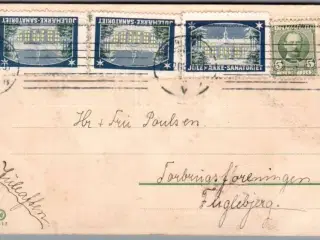 JULEMÆRKE-SANATORIET
JULEMÆRKE-SANATORIET
JULEMÆRKE-SANATORIET
5
5
Hr + Fru Poulsen.
Forbrugsforeningen
Fuglebjerg.
Juleaften